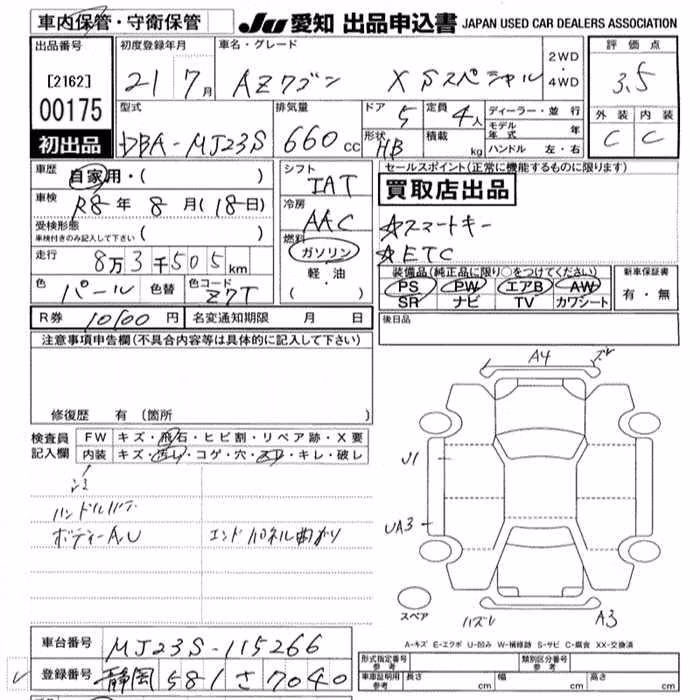 車内保管・守衛保管
JU 愛知 出品申込書 JAPAN USED CAR DEALERS ASSOCIATION
出品番号 初度登録年月 車名・グレード 2WD・4WD 評価点
[2162] 21 7月 AZワゴン XSスペシャル 3.5
00175 型式 排気量 ドア 5 定員 4人 ディーラー・並行 外装 内装
初出品 DBA-MJ23S 660cc 形状 HB 積載 kg モデル年式 年 C C
ハンドル 左・右
車歴 自家用・( ) シフト IAT セールスポイント(正常に機能するものに限ります)
車検 R8年 8月(18日) 冷房 AAC 買取店出品
受検形態 車検付きのみ記入して下さい ( ) 燃料 ☆スマートキー
走行 8万3千505km ガソリン ☆ETC
色 パール 色替 色コード Z7T 軽油 ・( )
装備品(純正品に限り○をつけてください) 新車保証書
PS PW エアB AW 有・無
SR ナビ TV カワシート
R券 10100円 名変通知期限 月 日 後日品
注意事項申告欄(不具合内容等は具体的に記入して下さい)
修復歴 有 (箇所 )
検査員記入欄 FW キズ・飛石・ヒビ割・リペア跡・X要
内装 キズ・汚れ・コゲ・穴・スレ・キレ・破レ
ハンドルハゲ
ボディーA,U エンドパネル曲がり
A4
U1
UA3
スペア ハズレ A3
A-キズ E-エクボ U-凹み W-補修跡 S-サビ C-腐食 XX-交換済
車台番号 MJ23S-115266
登録番号 静岡 581 さ 7040
形式指定番号 参考 類別区分番号 参考
車庫証明用 参考 長さ cm 幅 cm 高さ cm